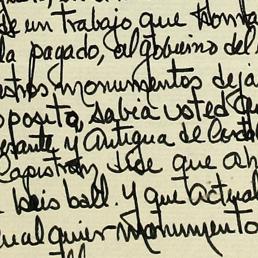 de un trabajo que
la pagado, el gobierno del
monumentos deja
oposito, sabia usted que
y Antigua de
Capistrán sede que ah
beis ball. y que actual
cualquier monumento